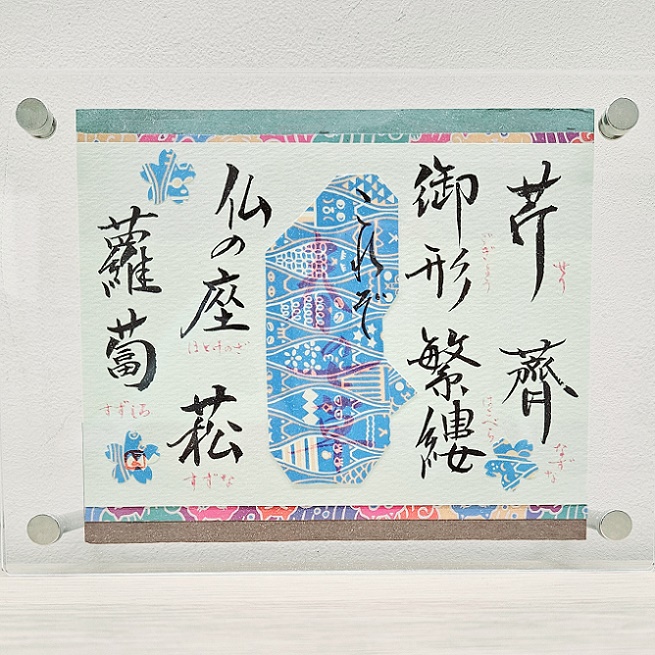 芹 薺
せり なずな
御形 繁縷
ごぎょう はこべら
これぞ
仏の座 菘
ほとけのざ すずな
蘿蔔
すずしろ